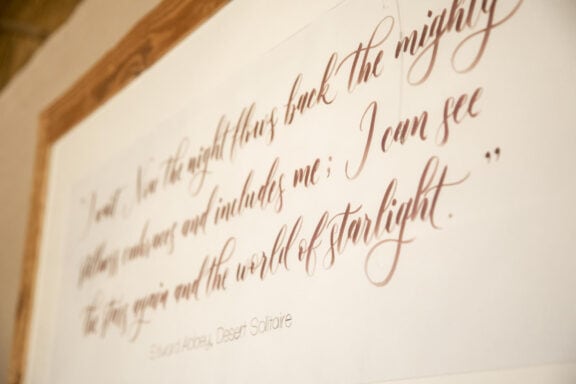 "I wait. Now the night flows back the mighty
stillness embraces and includes me; I can see
the stars again and the world of starlight."
Edward Abbey, Desert Solitaire